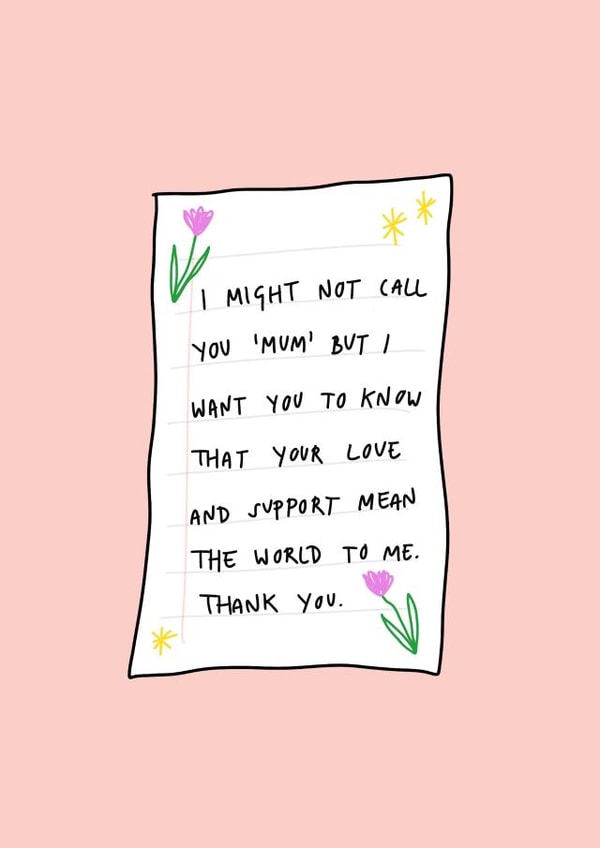 I MIGHT NOT CALL
YOU 'MUM' BUT I
WANT YOU TO KNOW
THAT YOUR LOVE
AND SUPPORT MEAN
THE WORLD TO ME.
THANK YOU.